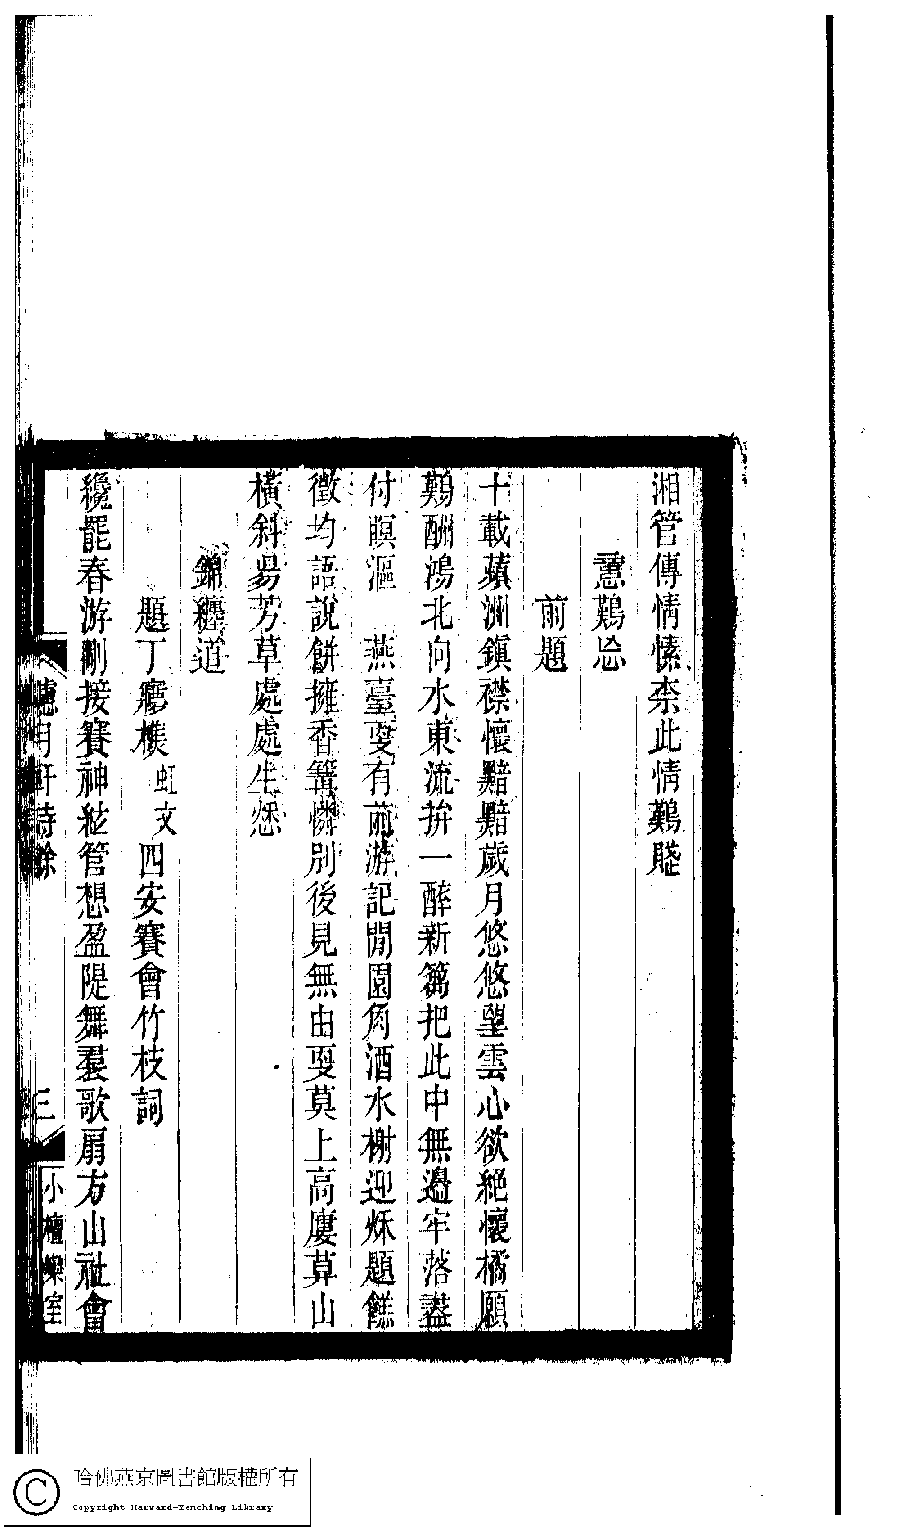 湘管傳情愫柰此情難賤
意難忘
前題
十載蘋洲鎮襟懷黯黯歲月悠悠望雲心欲絕懷橘願
難酬鴻北向水東流拚一醉新篘把此中無邊牢落盡
付瞑漚　燕臺更有前游記閒園角酒水榭迎秌題餻
徵均語說餅擁香篝憐別後見無由更莫上高廔莫山
橫斜昜芳草處處生愁
錦纏道
題丁　樵虹文四安賽會竹枝詞
纔罷春游剛接賽神絃管想盈隄舞裠歌扇方山社會
聽月軒詩餘
三
小檀欒室
哈佛燕京圖書館版權所有
Copyright Harvard-Yenching Library